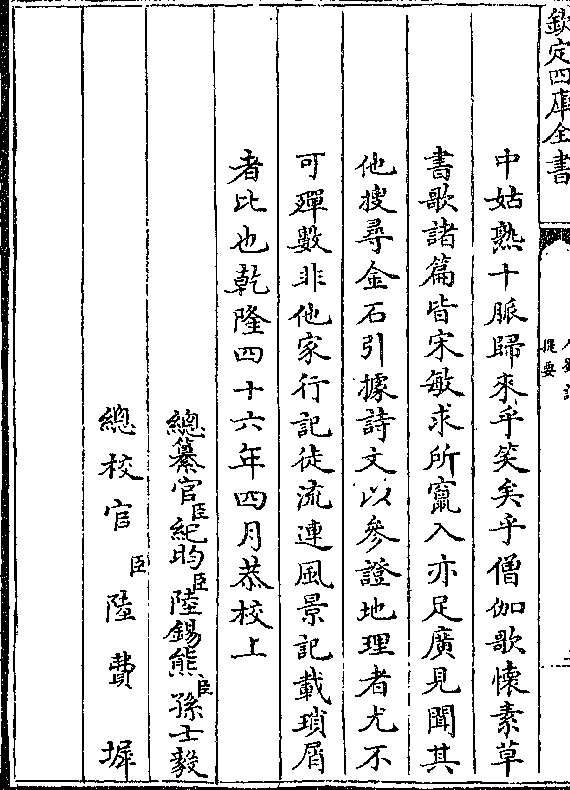 欽定四庫全書
提要
中姑熟十脈歸來乎笑矣乎僧伽歌懷素草
書歌諸篇皆宋敏求所竄入亦足廣見聞其
他搜尋金石引據詩文以參證地理者尤不
可殫數非他家行記徒流連風景記載瑣屑
者比也乾隆四十六年四月恭校上
總纂官臣紀昀臣陸錫熊臣孫士毅
總校官臣陸費墀